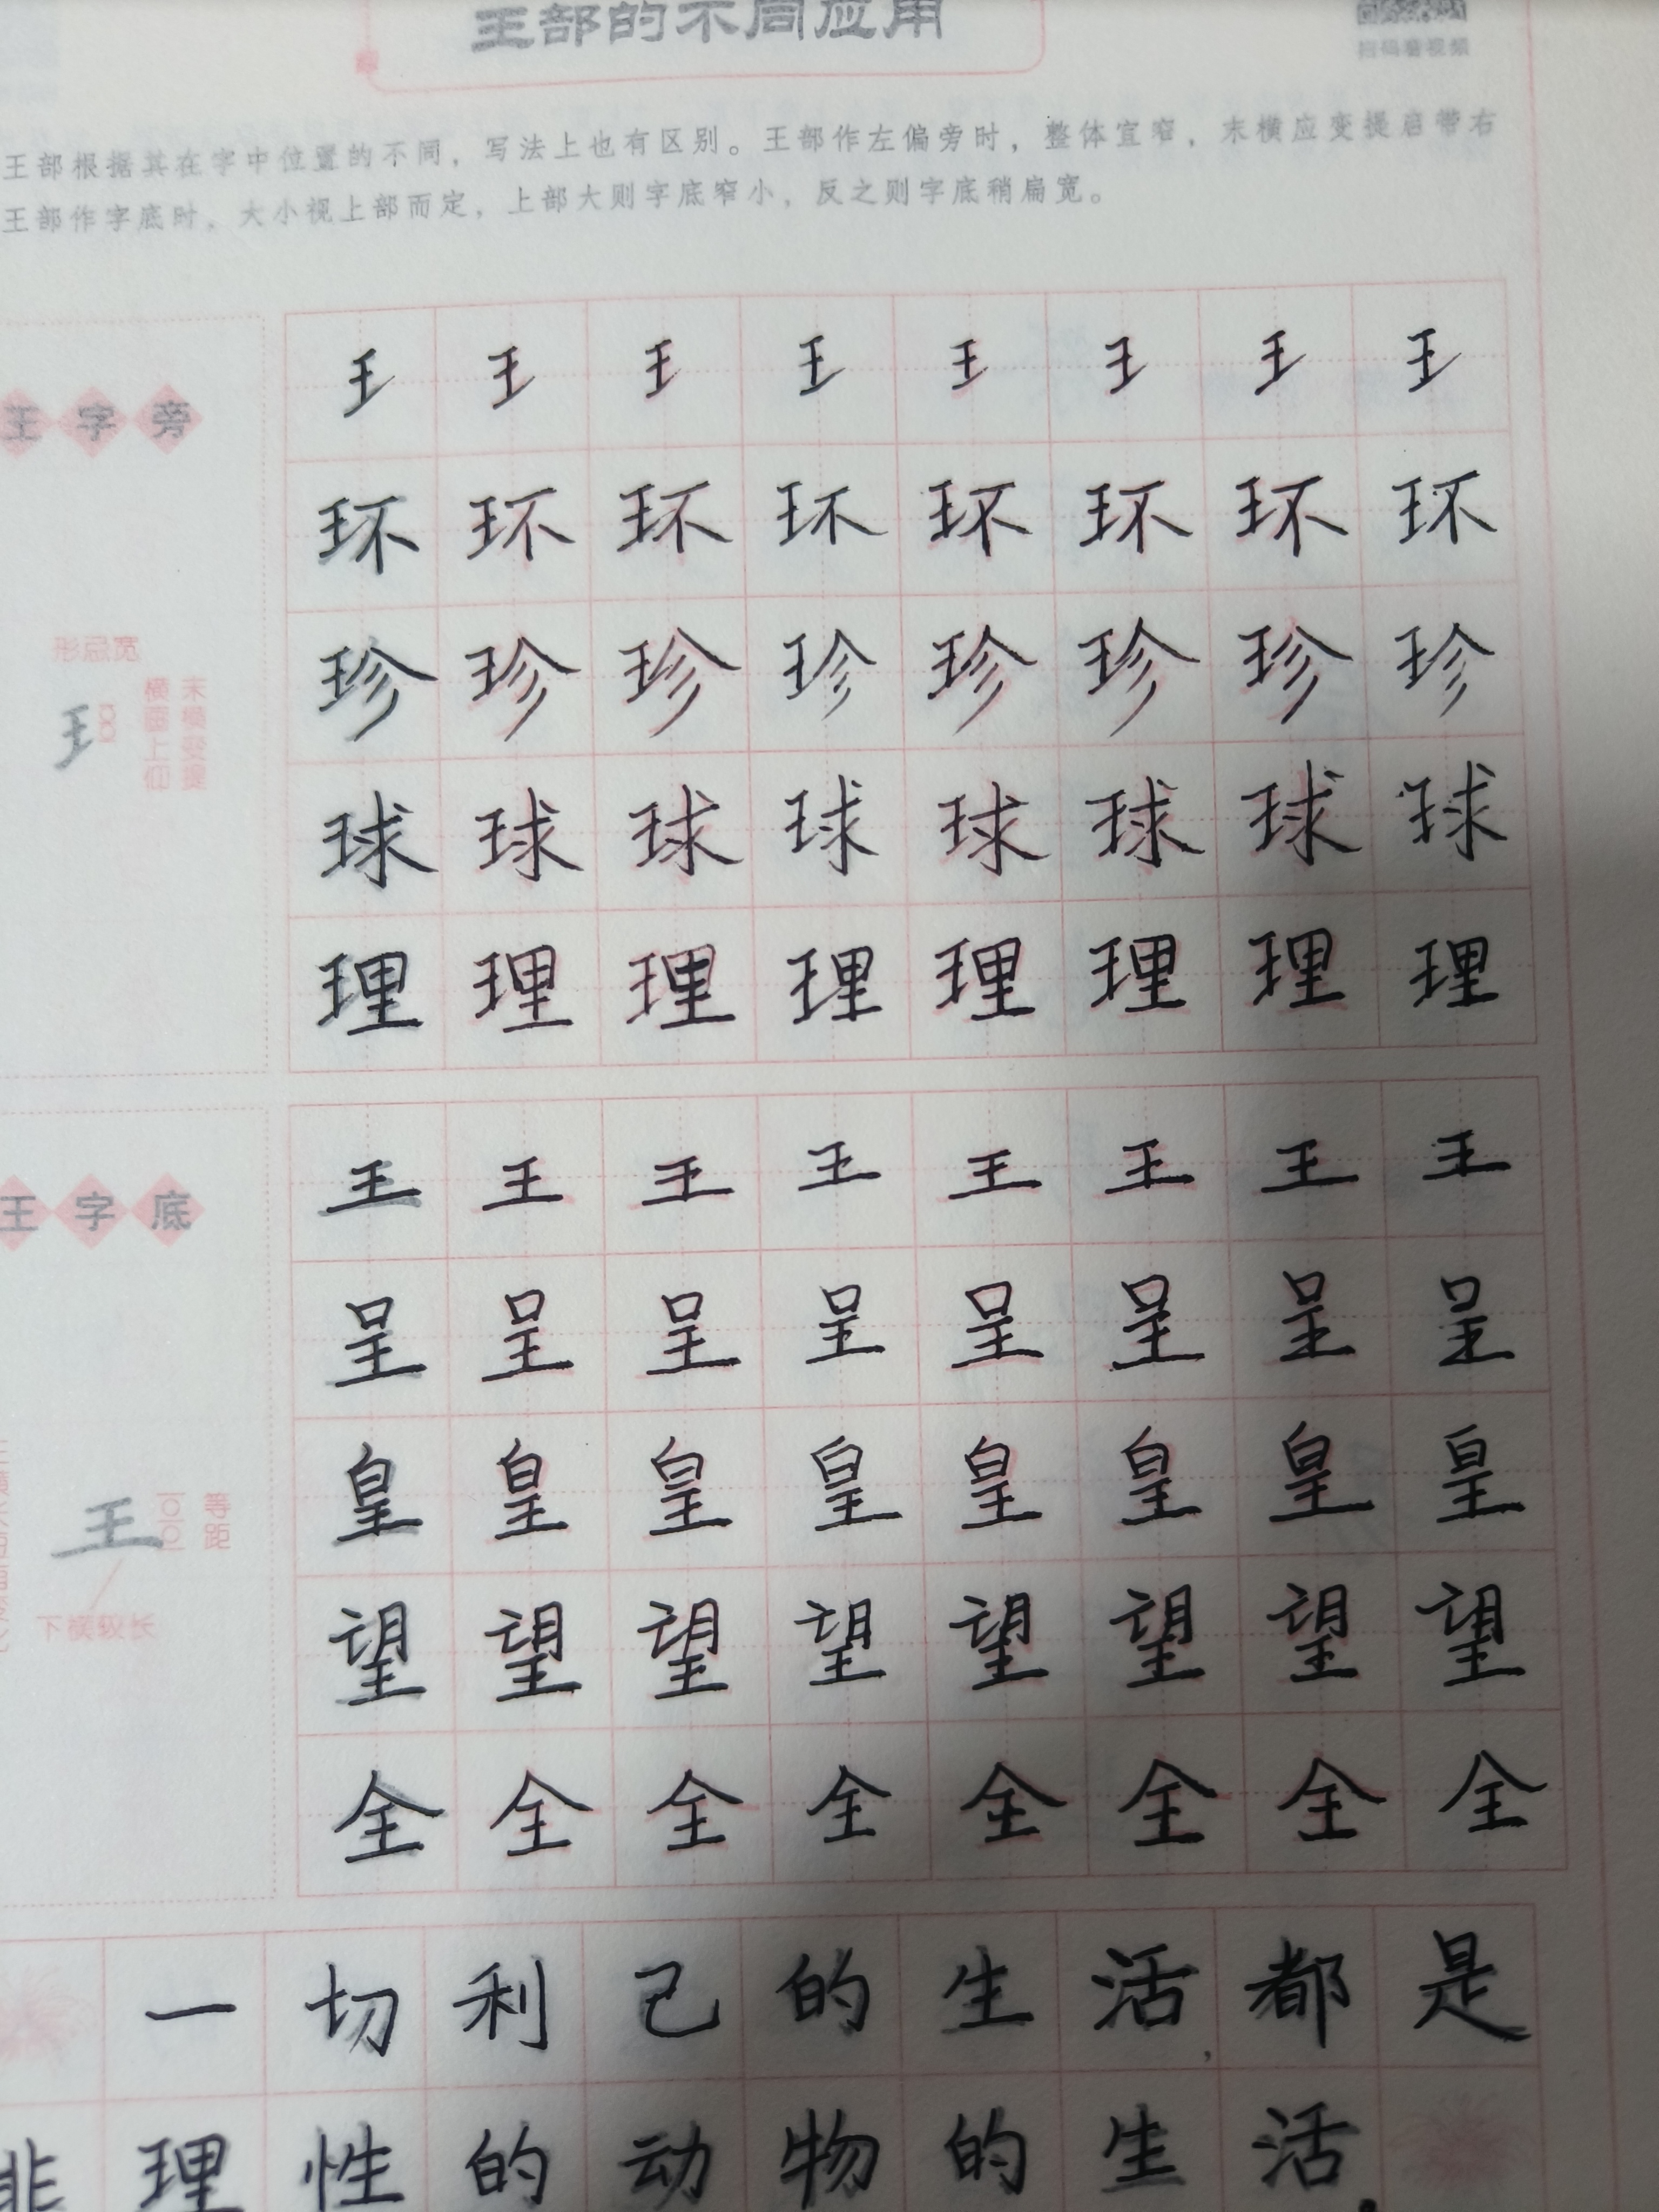 王部的不同应用
扫码看视频
王部根据其在字中位置的不同，写法上也有区别。王部作左偏旁时，整体宜窄，末横应变提启带右
王部作字底时，大小视上部而定，上部大则字底窄小，反之则字底稍扁宽。
王字旁
形忌宽
末横变提
横画上仰
王
王 王 王 王 王 王 王 王
环 环 环 环 环 环 环 环
珍 珍 珍 珍 珍 珍 珍 珍
球 球 球 球 球 球 球 球
理 理 理 理 理 理 理 理
王字底
等距
王
下横较长
王 王 王 王 王 王 王 王
呈 呈 呈 呈 呈 呈 呈 呈
皇 皇 皇 皇 皇 皇 皇 皇
望 望 望 望 望 望 望 望
全 全 全 全 全 全 全 全
一切利己的生活，都是
非理性的动物的生活。